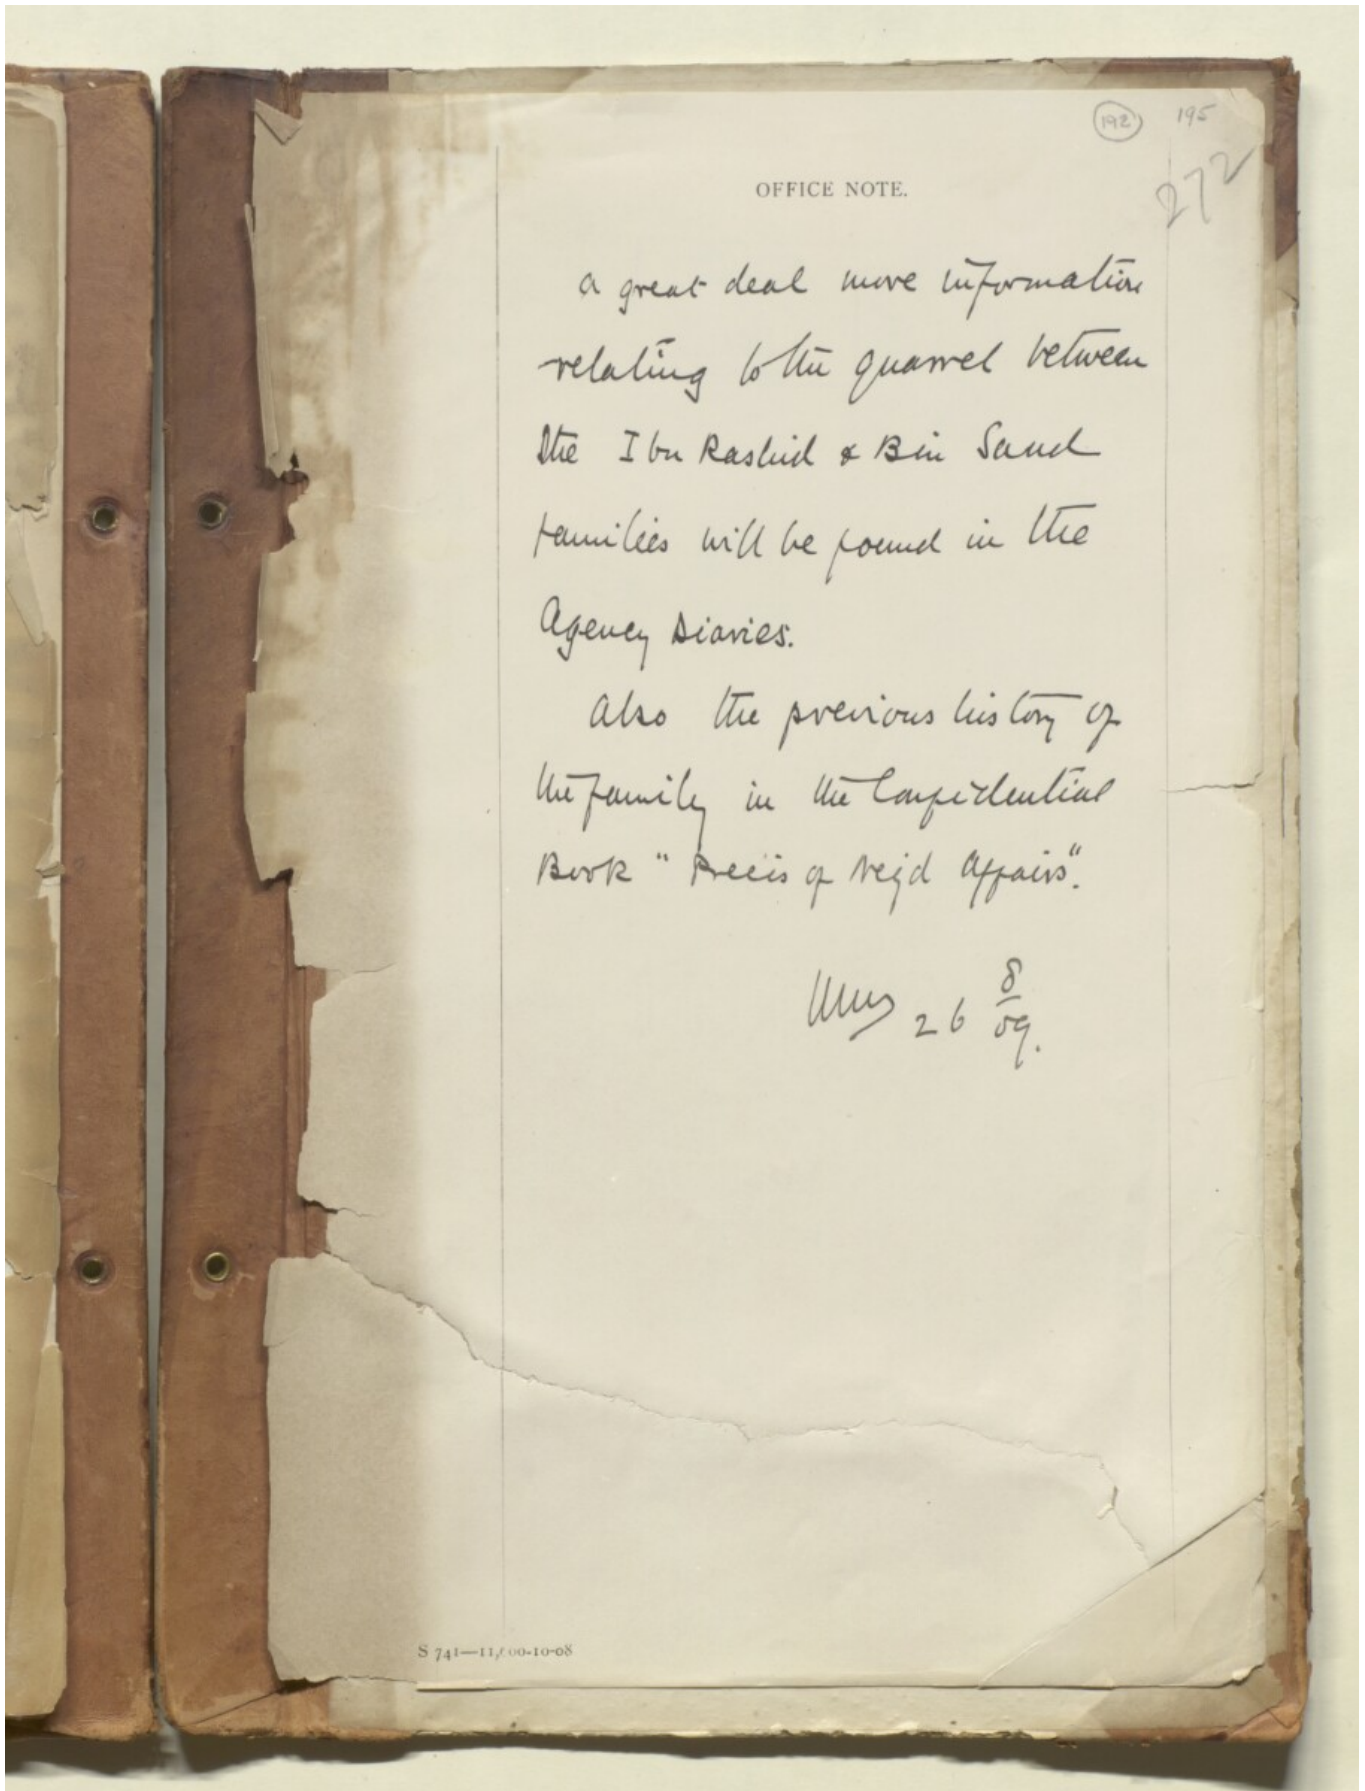 192 195
272
OFFICE NOTE.
A great deal more information
relating to the quarrel between
the Ibn Rashid & Bin Saud
families will be found in the
Agency Diaries.
Also the previous history of
the family in the Confidential
Book "Precis of Nejd Affairs".
26 8/09.
S 741—11,000-10-08